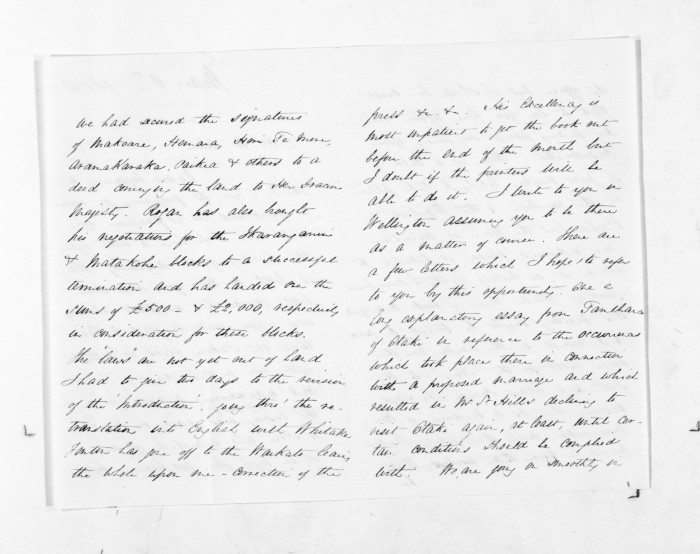 We had secured the signatures
of Makoare, Hemara, Hori Te More,
Aramakaraka, Paikea & others to a
deed conveying the land to Her Gracious
Majesty. Rogan has also brought
his negotiations for the Waranganui
& Matakohe blocks to a successful
termination and has handed over the
sums of £500 - & £2,000, respectively
in consideration for these blocks.
The laws are not yet out of hand
I had to give two days to the revision
of the 'Introduction'. going thro' the re-
translation into English with Whitaker
Fenton has gone off to the Waikato leaving
the whole upon me - correction of the
press &c. &c. His Excellency is
most impatient to get the book out
before the end of the month but
I doubt if the printers will be
able to do it. I write to you in
Wellington assuming you to be there
as a matter of course. There are
a few letters which I hope to refer
to you by this opportunity. One a
long explanatory essay from
of Otaki in reference to the occurrences
which took place there in connection
with a proposed marriage and which
resulted in Mr St. Hill's declining to
visit Otaki again, at least, until cer-
tain conditions should be complied
with. We are going on smoothly in